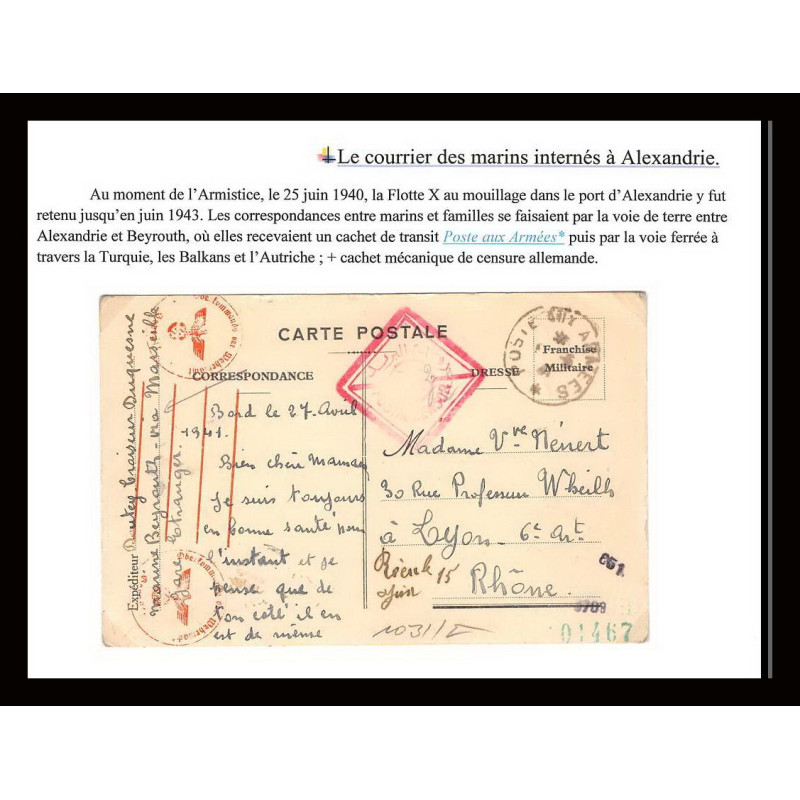 Le courrier des marins internés à Alexandrie.
Au moment de l'Armistice, le 25 juin 1940, la Flotte X au mouillage dans le port d'Alexandrie y fut
retenu jusqu'en juin 1943. Les correspondances entre marins et familles se faisaient par la voie de terre entre
Alexandrie et Beyrouth, où elles recevaient un cachet de transit Poste aux Armées* puis par la voie ferrée à
travers la Turquie, les Balkans et l'Autriche ; + cachet mécanique de censure allemande.
CARTE POSTALE
CORRESPONDANCE
DRESSE
POSTE AUX ARMEES
Franchise
Militaire
Expéditeur Croiseur Duquesne
Marine Beyrouth - via Marseille
Gare Etranger.
Bord le 27 Avril
1941.
Bien chère Maman
Je suis toujours
en bonne santé pour
l'instant et je
pense que de
ton côté il en
est de même
Madame Vve Nénert
30 Rue Professeur
à Lyon - 6e Art
Rhône.
15
1031
01467